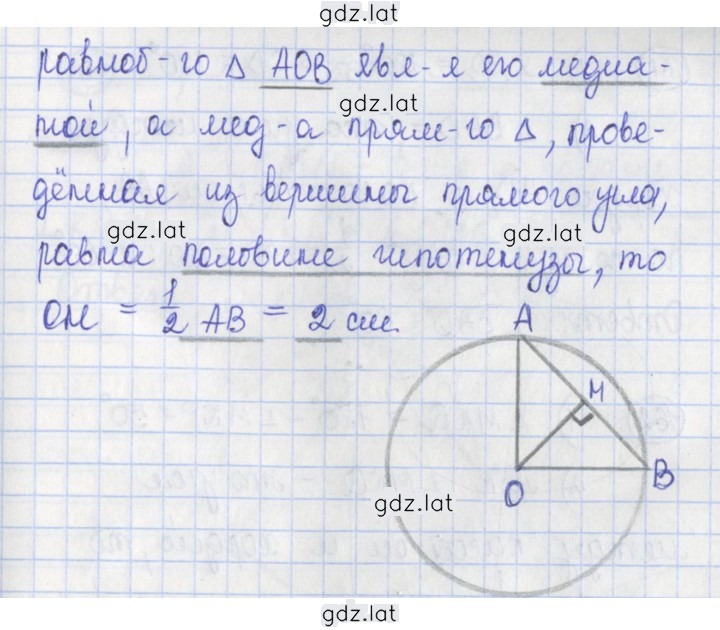 gdz.lat
равноб-го Δ AOB явл-я его медиа-
gdz.lat
ной, а мед-а прям-го Δ, прове-
дённая из вершины прямого угла,
gdz.lat
gdz.lat
равна половине гипотенузы, то
OM = 1/2 AB = 2 см.
A
M
B
O
gdz.lat
gdz.lat